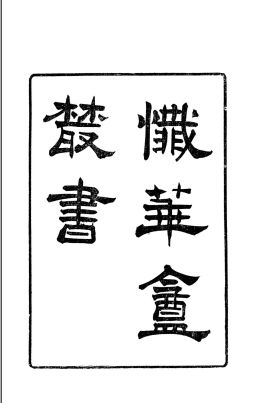 懺華盦
叢書